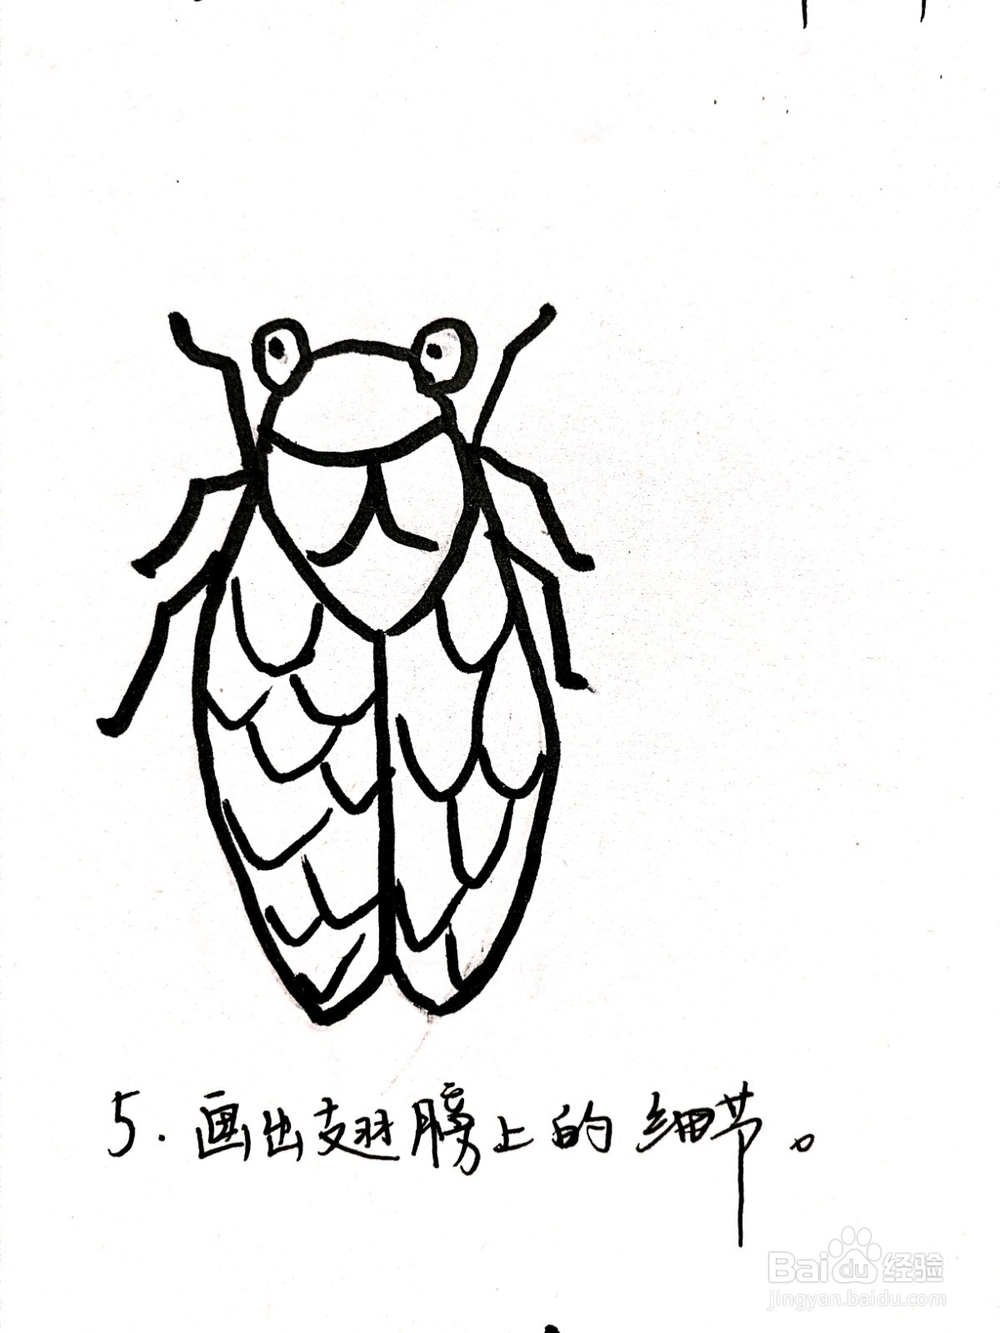 5. 画出翅膀上的细节。
Baidu 经验
jingyan.baidu.com